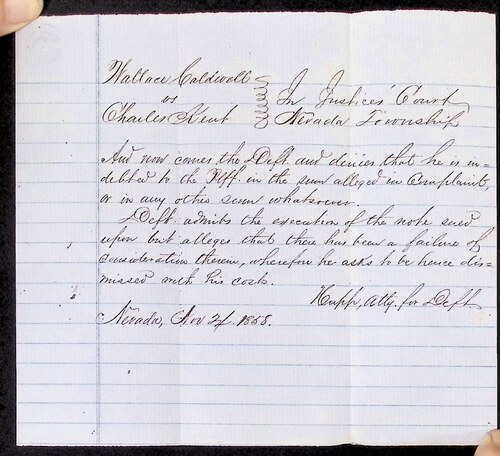 Wallace Caldwell
vs
Charles Kent
In Justices' Court
Nevada Township
And now comes the Deft. and denies that he is in-
debted to the Plff. in the sum alleged in Complaint,
or in any other sum whatsoever.
Deft. admits the execution of the note sued
upon but alleges that there has been a failure of
consideration therein, wherefore he asks to be hence dis-
missed with his costs.
Hupp, Atty. for Deft.
Nevada, Nov 1858.